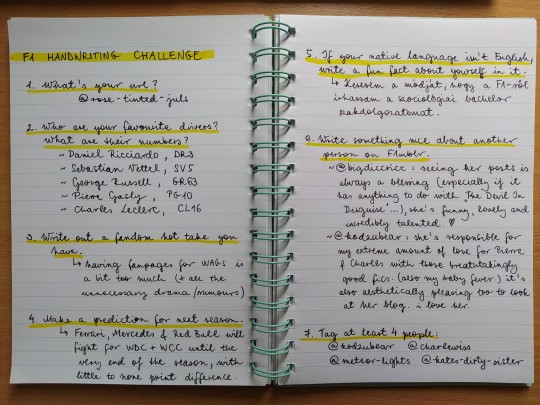 F1 HANDWRITING CHALLENGE
1. What's your url?
@rose-tinted-juls
2. Who are your favourite drivers?
What are their numbers?
~ Daniel Ricciardo, DR3
~ Sebastian Vettel, SV5
~ George Russell, GR63
~ Pierre Gasly, PG10
~ Charles Leclerc, CL16
3. Write out a fandom hot take you
have.
↳ having fanpages for WAGs is
a bit too much (+ all the
unnecessary drama/rumours)
4. Make a prediction for next season.
↳ Ferrari, Mercedes & Red Bull will
fight for WDC + WCC until the
very end of the season, with
little to none point difference.
5. If your native language isn't English,
write a fun fact about yourself in it.
↳ Keresem a módját, hogy a F1-ről
írhassam a szociológiai bachelor
szakdolgozatomat.
6. Write something nice about another
person on F1mblr.
~ @bigdiccricc : seeing her posts is
always a blessing (especially if it
has anything to do with 'The Devil In
Disguise'...), she's funny, lovely and
incredibly talented ♡
~ @kodzubear : she's responsible for
my extreme amount of love for Pierre
& Charles with those breathtakingly
good fics. (also my baby fever) it's
also aesthetically pleasing too to look
at her blog. i love her.
7. Tag at least 4 people:
@kodzubear @charlewiss
@meteor-lights @kates-dirty-sister